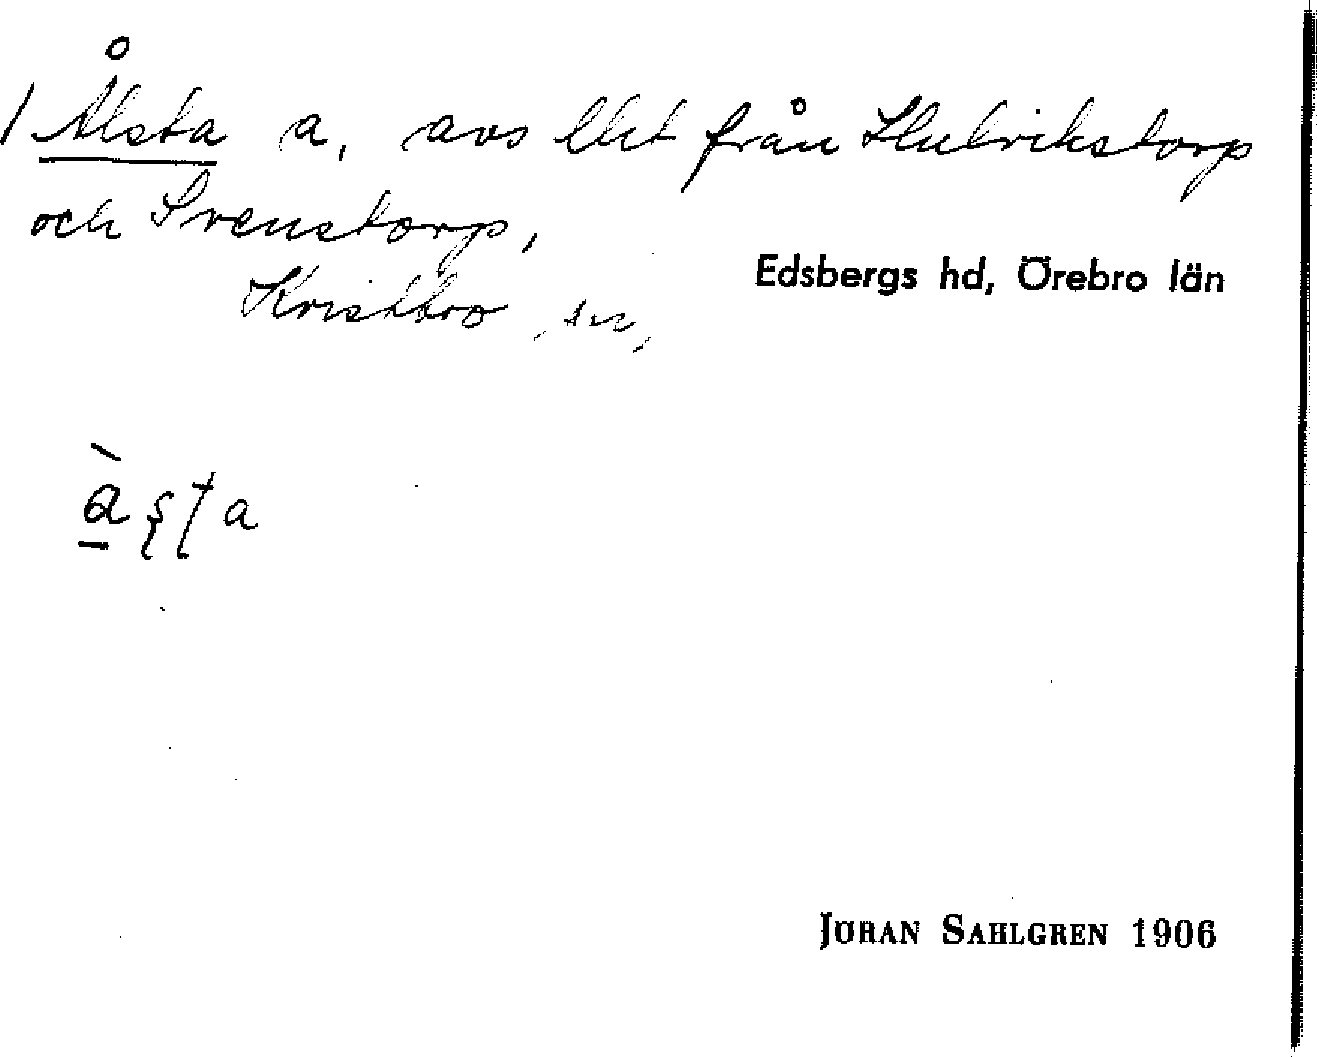 1 Ålsta a, avs lht från Hulrikstorp
och Svenstorp,
Edsbergs hd, Örebro län
sn,
a
JÖRAN SAHLGREN 1906